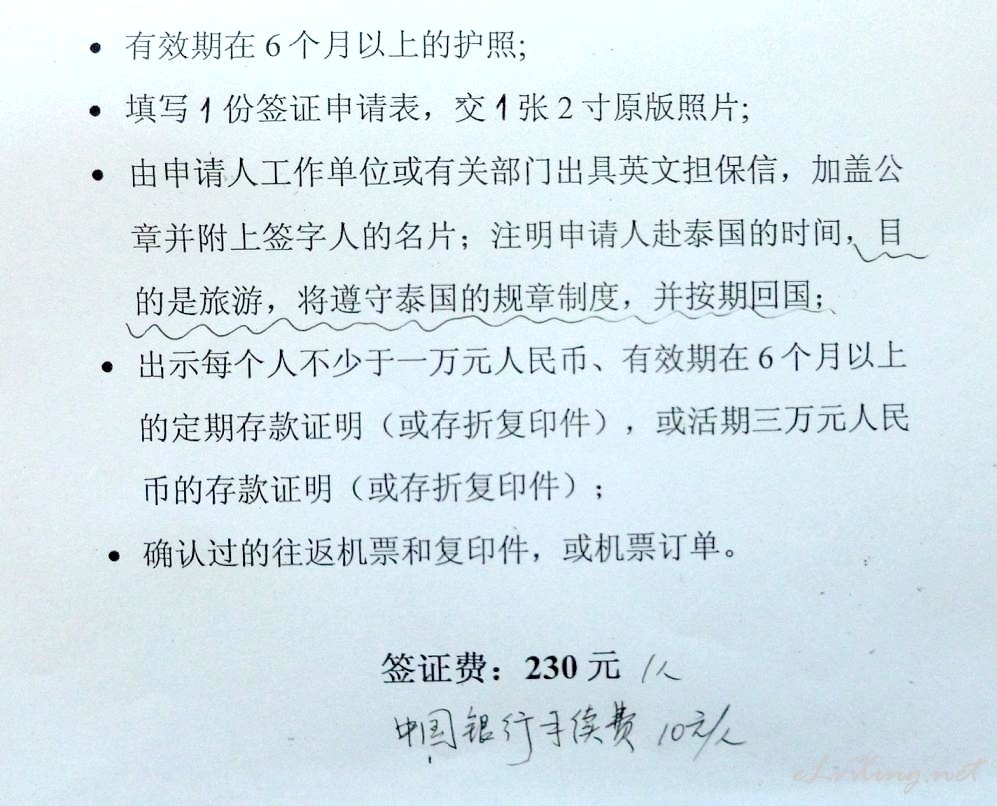 • 有效期在6个月以上的护照;
• 填写1份签证申请表，交1张2寸原版照片;
• 由申请人工作单位或有关部门出具英文担保信，加盖公
章并附上签字人的名片；注明申请人赴泰国的时间，目
的是旅游，将遵守泰国的规章制度，并按期回国；
• 出示每个人不少于一万元人民币、有效期在6个月以上
的定期存款证明（或存折复印件），或活期三万元人民
币的存款证明（或存折复印件）；
• 确认过的往返机票和复印件，或机票订单。
签证费：230元 /人
中国银行手续费 10元/人